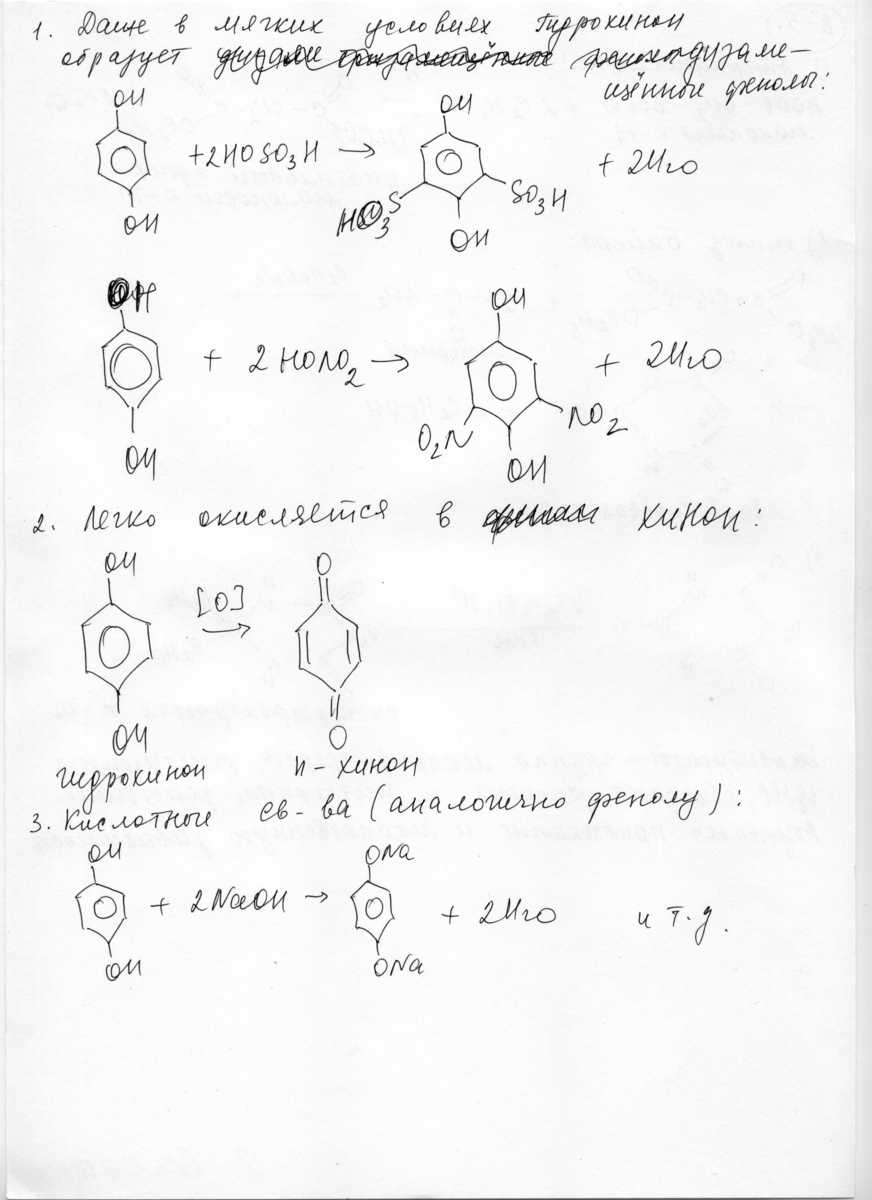 1. Даже в мягких условиях Гидрохинон
образует дизаме-
щённые фенолы:
OH
+2HOSO3H → + 2H2O
OH HO3S SO3H
OH
OH OH
+ 2HONO2 → + 2H2O
O2N NO2
OH OH
2. Легко окисляется в хинон:
OH O
[O] →
OH O
гидрохинон п-хинон
3. Кислотные св-ва (аналогично фенолу):
OH ONa
+ 2NaOH → + 2H2O и т.д.
OH ONa